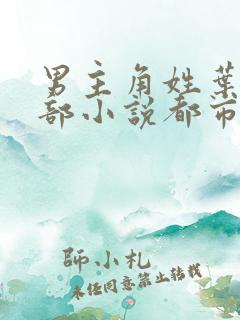 男主角姓葉
部小說都市
師小札
未经同意禁止转载